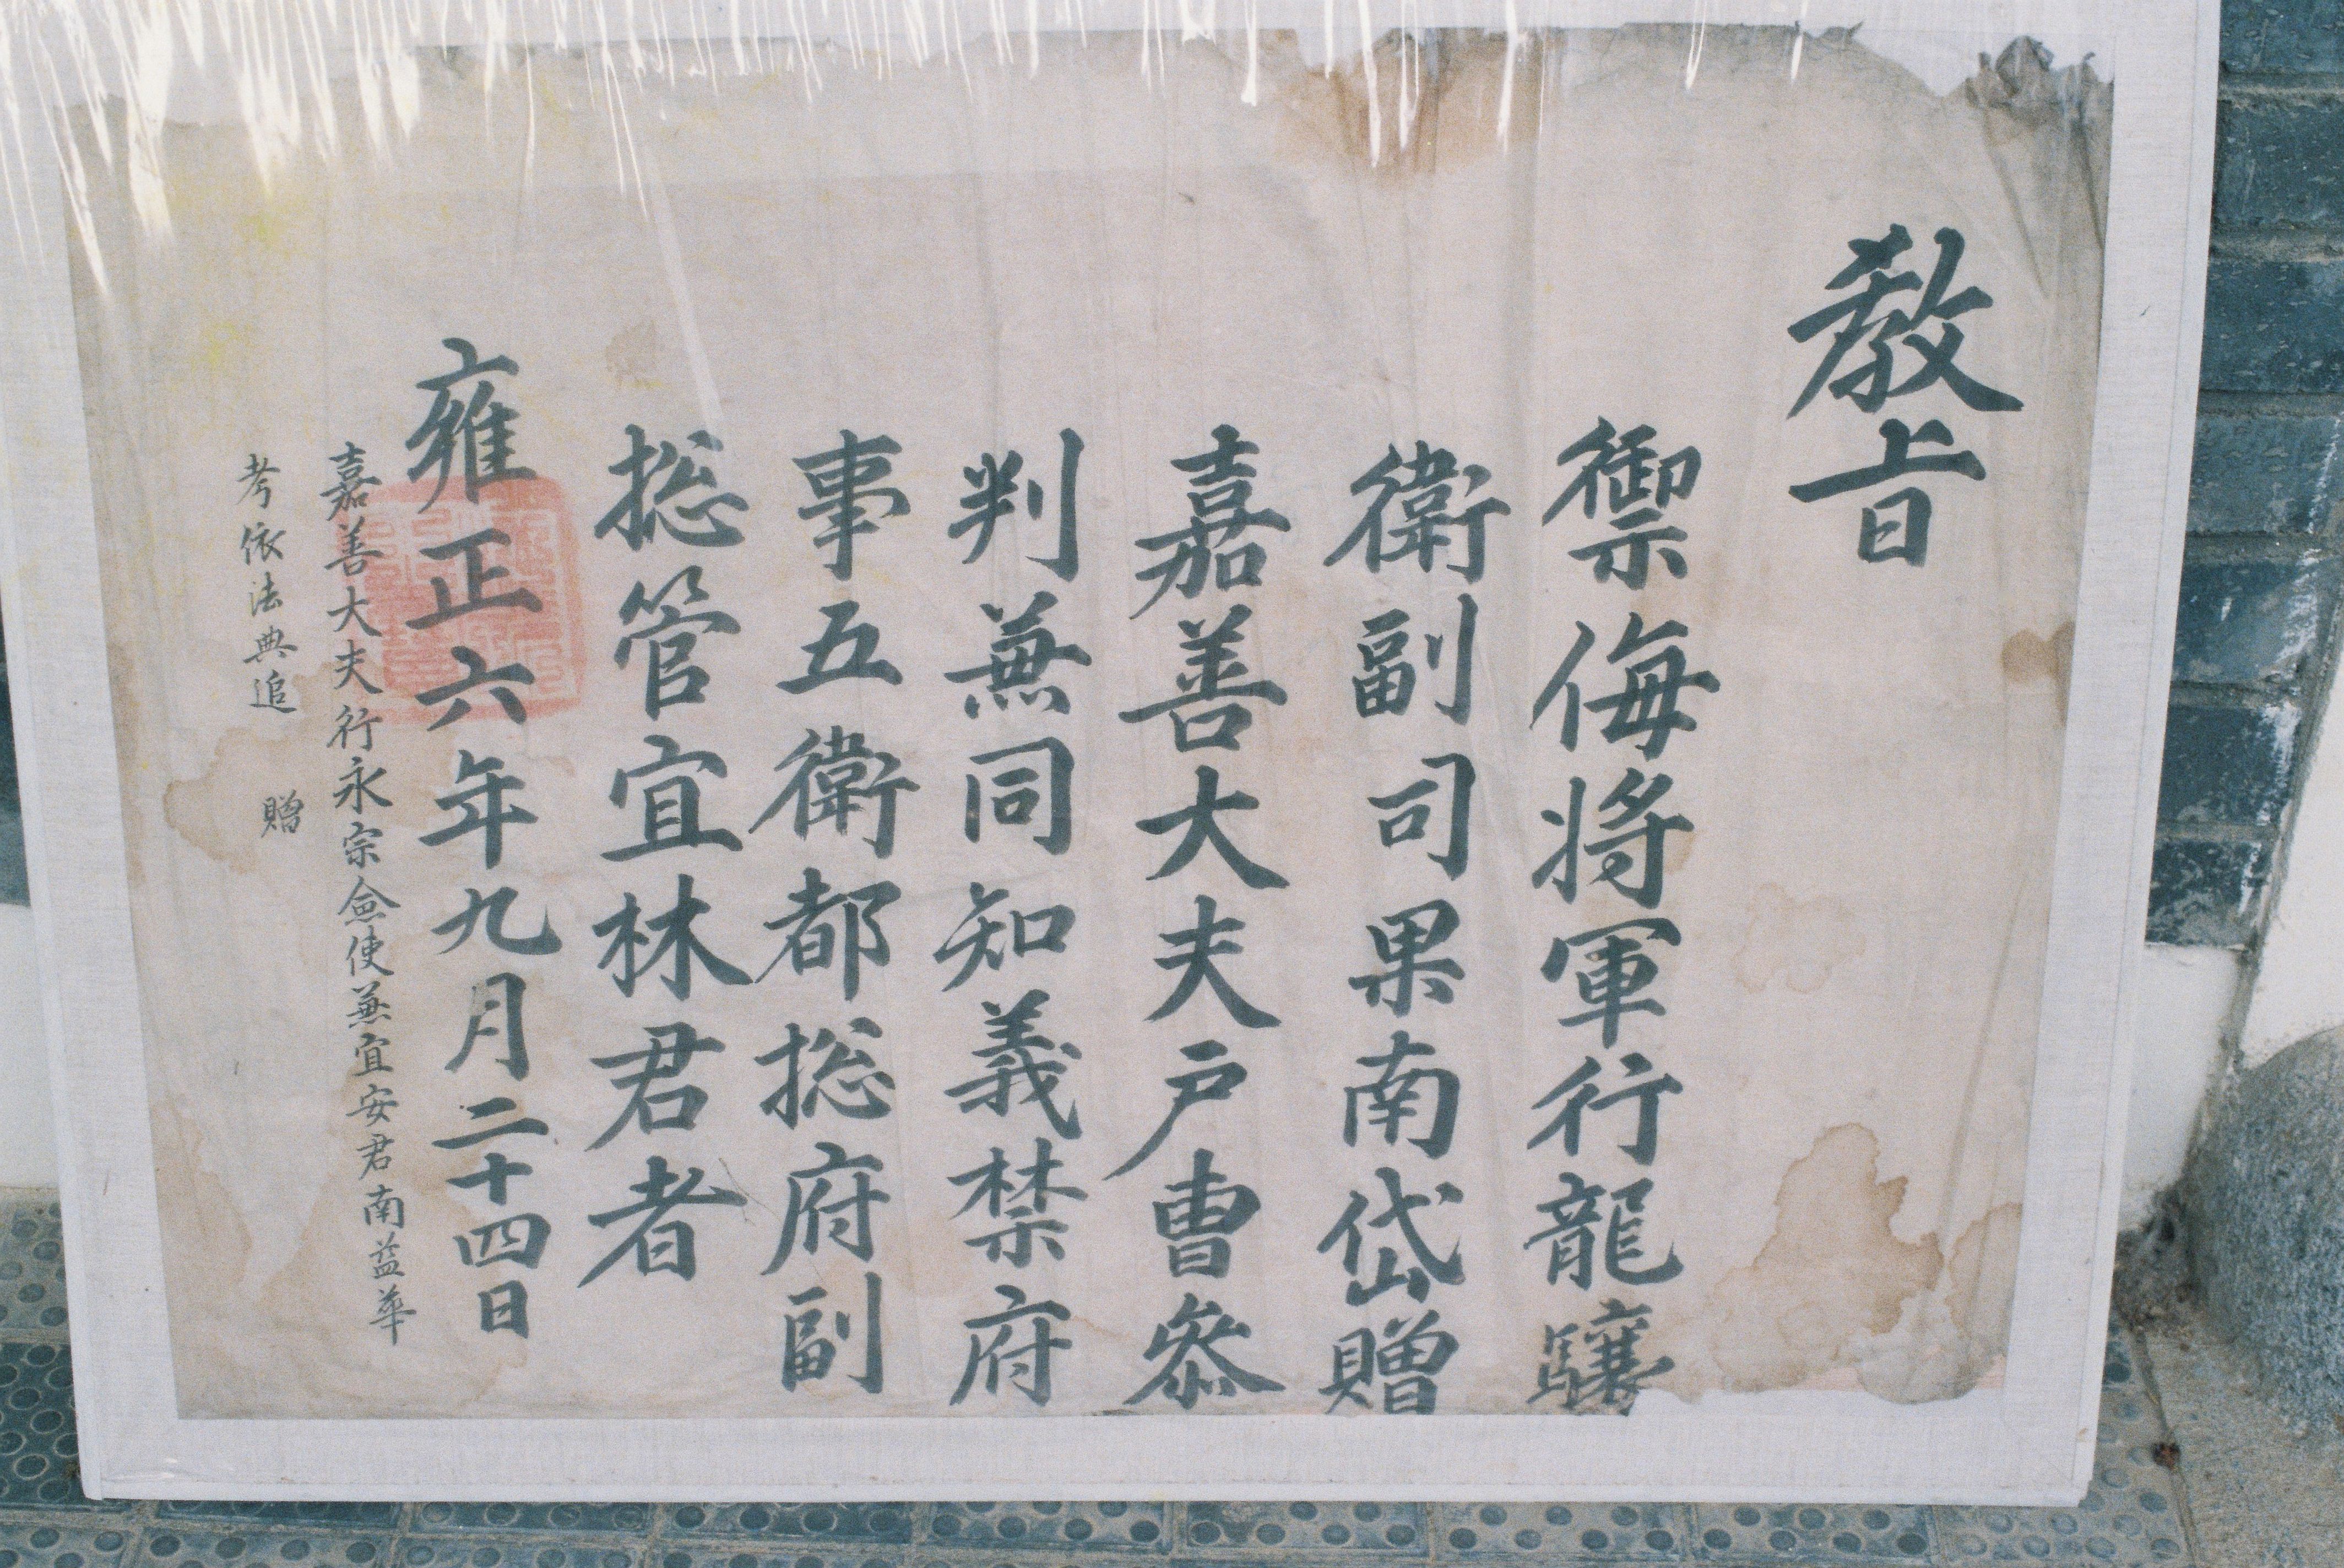 敎旨
禦侮將軍行龍驤
衛副司果南岱贈
嘉善大夫戶曹叅
判兼同知義禁府
事五衛都捴府副
捴管宜林君者
雍正六年九月二十四日
嘉善大夫行永宗僉使兼宜安君南益華
考依法典追 贈